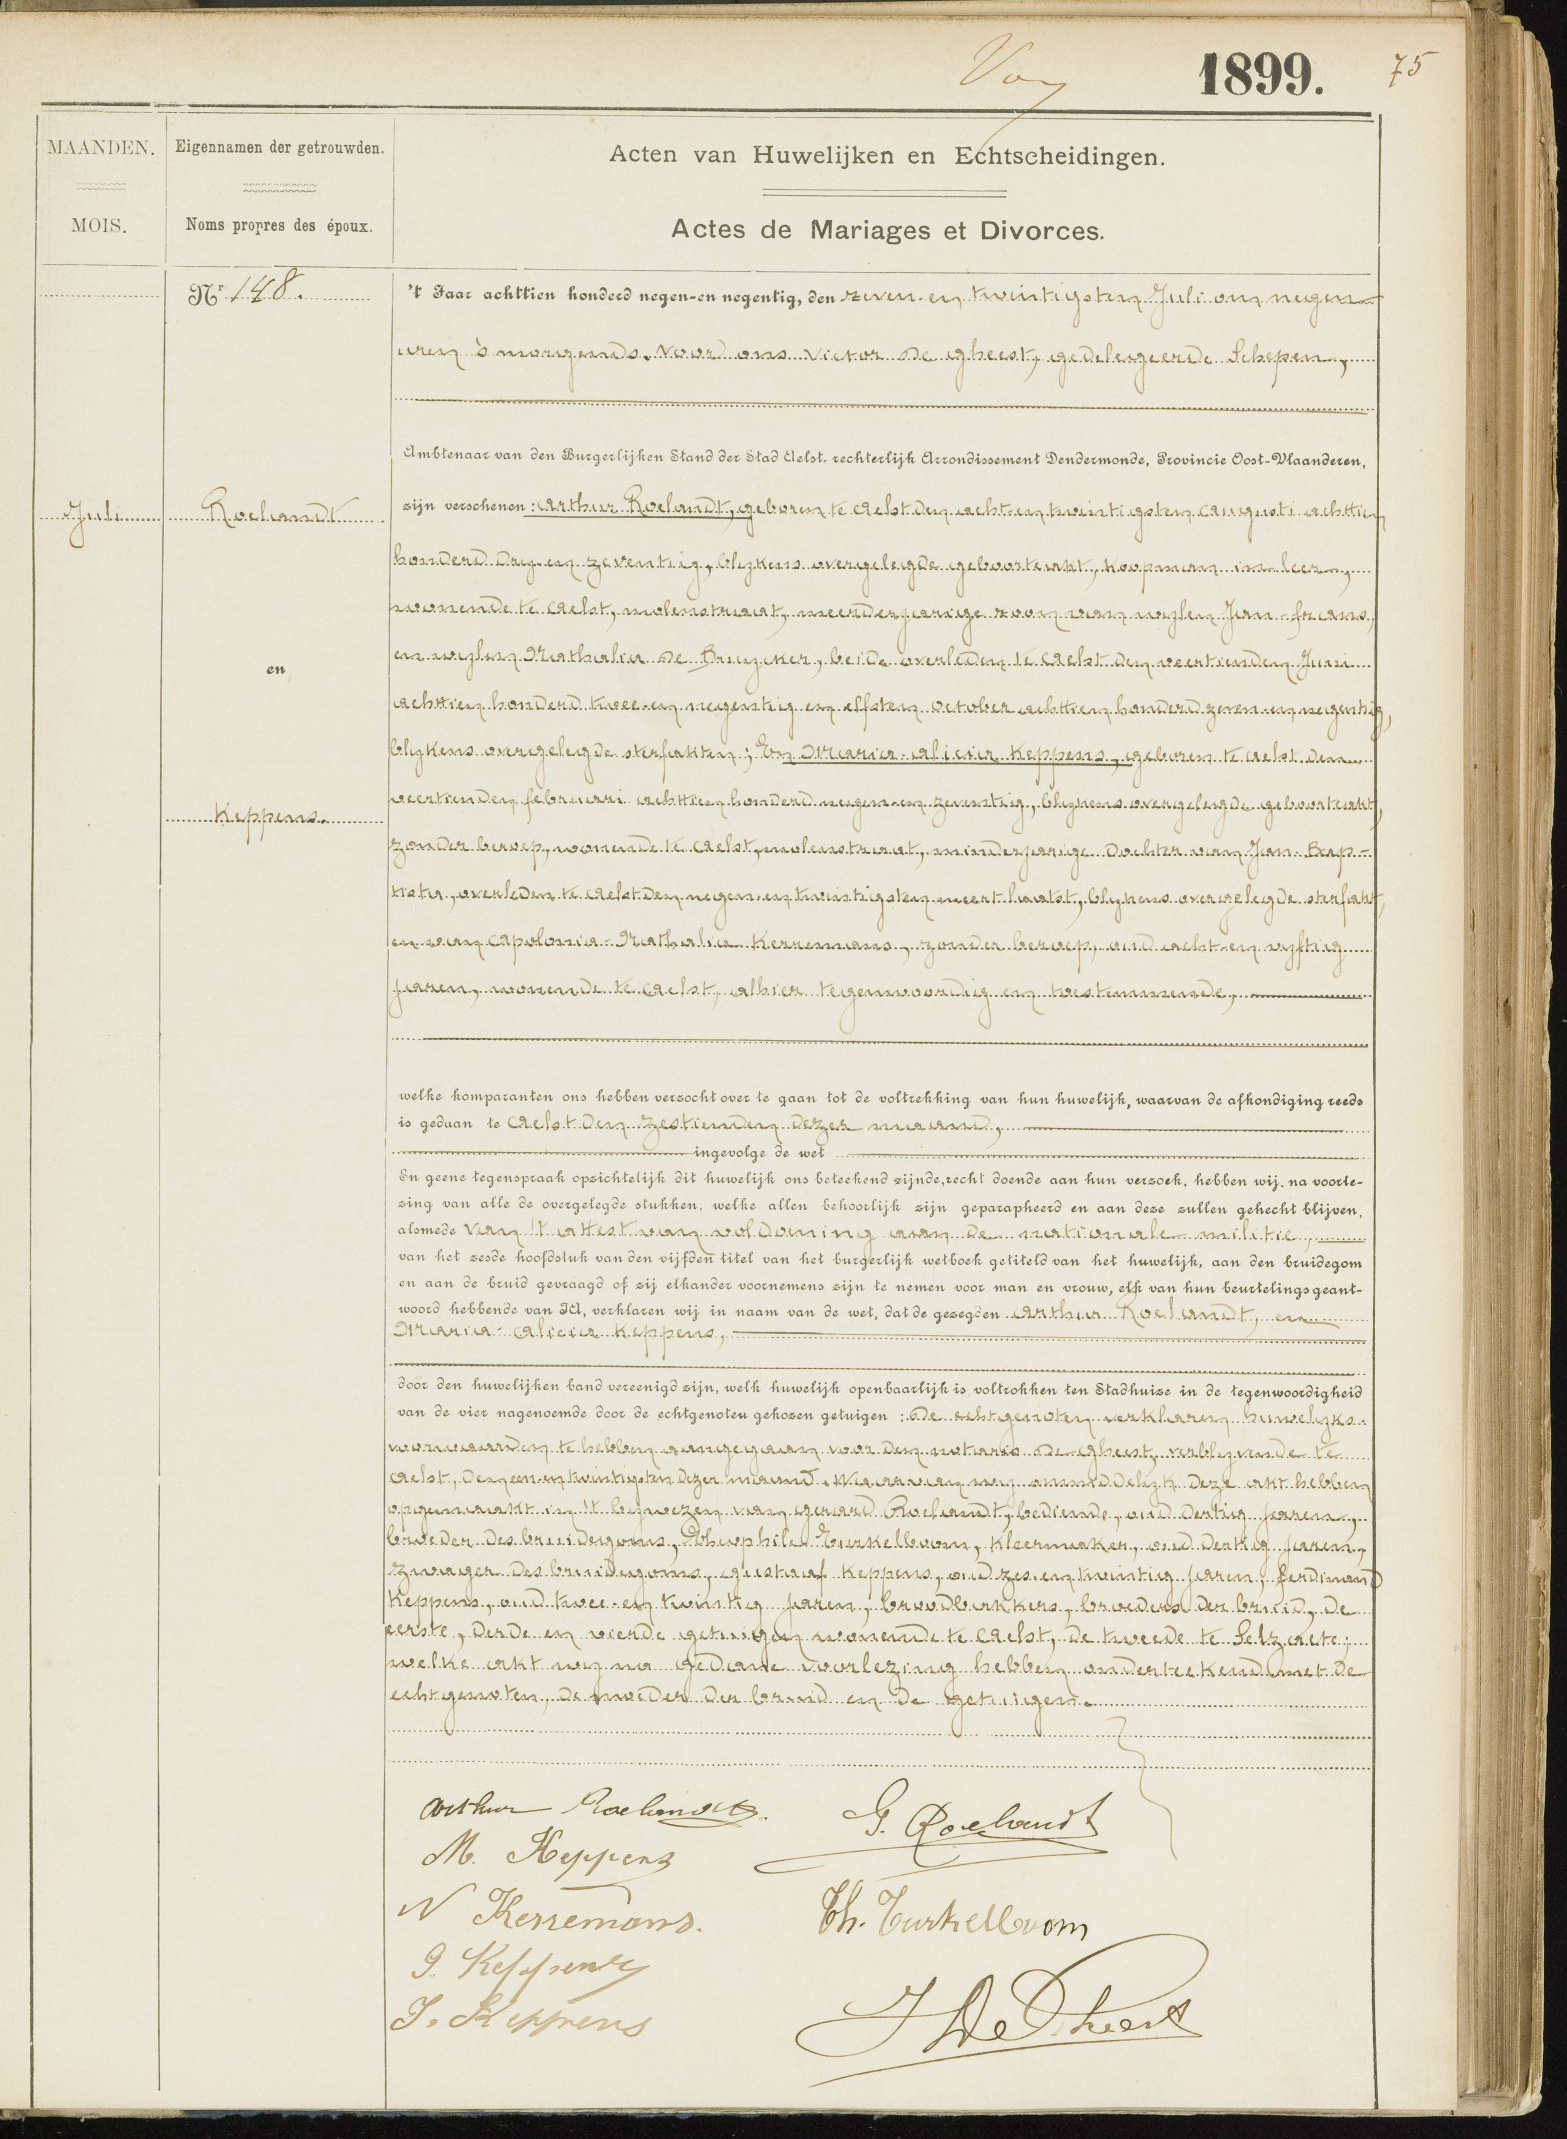 Vay
1899.
75
MAANDEN.
MOIS.
Eigennamen der getrouwden.
Noms propres des époux.
Acten van Huwelijken en Echtscheidingen.
Actes de Mariages et Divorces.
Nr 148.
Juli
Roelandt
en
Keppens.
't Jaar achttien honderd negen-en negentig, den zeven-en twintigsten Juli om negen
uren 's morgends. Voord ons Victor De Gheest, gedelegeerde Schepen,
Ambtenaar van den Burgerlijken Stand der Stad Aelst. rechterlijk Arrondissement Dendermonde, Provincie Oost-Vlaanderen,
zijn verschenen: Arthur Roelandt, geboren te Aelst den acht-en twintigsten Augusti achttien
honderd dry-en zeventig, blykens overgelegde geboorteakt, koopman in leer,
wonende te Aelst, molenstraat, meerderjarige zoon van wylen Jan-frans,
en wylen Nathalia De Bruycker, beide overleden te Aelst den veertienden Juni
achttien honderd twee-en negentig en elfsten October achttien honderd zeven-en negentig,
blykens overgelegde sterfakten; En Maria-Alicia Keppens, geboren te Aelst den
veertienden februari achttien honderd negen-en zeventig, blykens overgelegde geboorteakt,
zonder beroep, wonende te Aelst, molenstraat, minderjarige dochter van Jan-Bap-
tista, overleden te Aelst den negen-en twintigsten meert laatst, blykens overgelegde sterfakt,
en van Apolonia-Nathalia Kerremans, zonder beroep, oud acht-en vyftig
jaren, wonende te Aelst, alhier tegenwoordig en toestemmende,
welke komparanten ons hebben verzocht over te gaan tot de voltrekking van hun huwelijk, waarvan de afkondiging reeds
is gedaan te Aelst den zestienden dezer maand,
ingevolge de wet
En geene tegenspraak opzichtelijk dit huwelijk ons beteekend zijnde, recht doende aan hun verzoek, hebben wij, na voorle-
zing van alle de overgelegde stukken, welke allen behoorlijk zijn geparapheerd en aan deze zullen gehecht blijven,
alsmede van 't attest van voldoening aan de nationale militie,
van het zesde hoofdstuk van den vijfden titel van het burgerlijk wetboek getiteld van het huwelijk, aan den bruidegom
en aan de bruid gevraagd of zij elkander voornemens zijn te nemen voor man en vrouw, elk van hun beurtelings geant-
woord hebbende van JA, verklaren wij in naam van de wet, dat de gezegden Arthur Roelandt, en
Maria-Alicia Keppens,
door den huwelijken band vereenigd zijn, welk huwelijk openbaarlijk is voltrokken ten Stadhuize in de tegenwoordigheid
van de vier nagenoemde door de echtgenoten gekozen getuigen: De echtgenoten verklaren huwelyks-
voorwaarden te hebben aangegaan voor den notaris De Gheest, verblyvende te
Aelst, den een-en twintigsten dezer maand. Waarvan wy onmiddelyk deze akt hebben
opgemaakt in 't bywezen van Gerard Roelandt, bediende, oud dertig jaren,
broeder des bruidegoms, Theophile Turkelboom, kleermaker, oud dertig jaren,
zwager des bruidegoms, Gustaaf Keppens, oud zes-en twintig jaren, ferdinand
Keppens, oud twee-en twintig jaren, broodbakkers, broeders der bruid, de
eerste, derde en vierde getuigen wonende te Aelst, de tweede te Selzaete;
welke akt wy na gedane voorlezing hebben onderteekend met de
echtgenoten, de moeder der bruid en de getuigen.
Arthur Roelandt. G. Roelandt
M. Keppens
N Kerremans. Th. Turkelboom
G. Keppens
F. Keppens